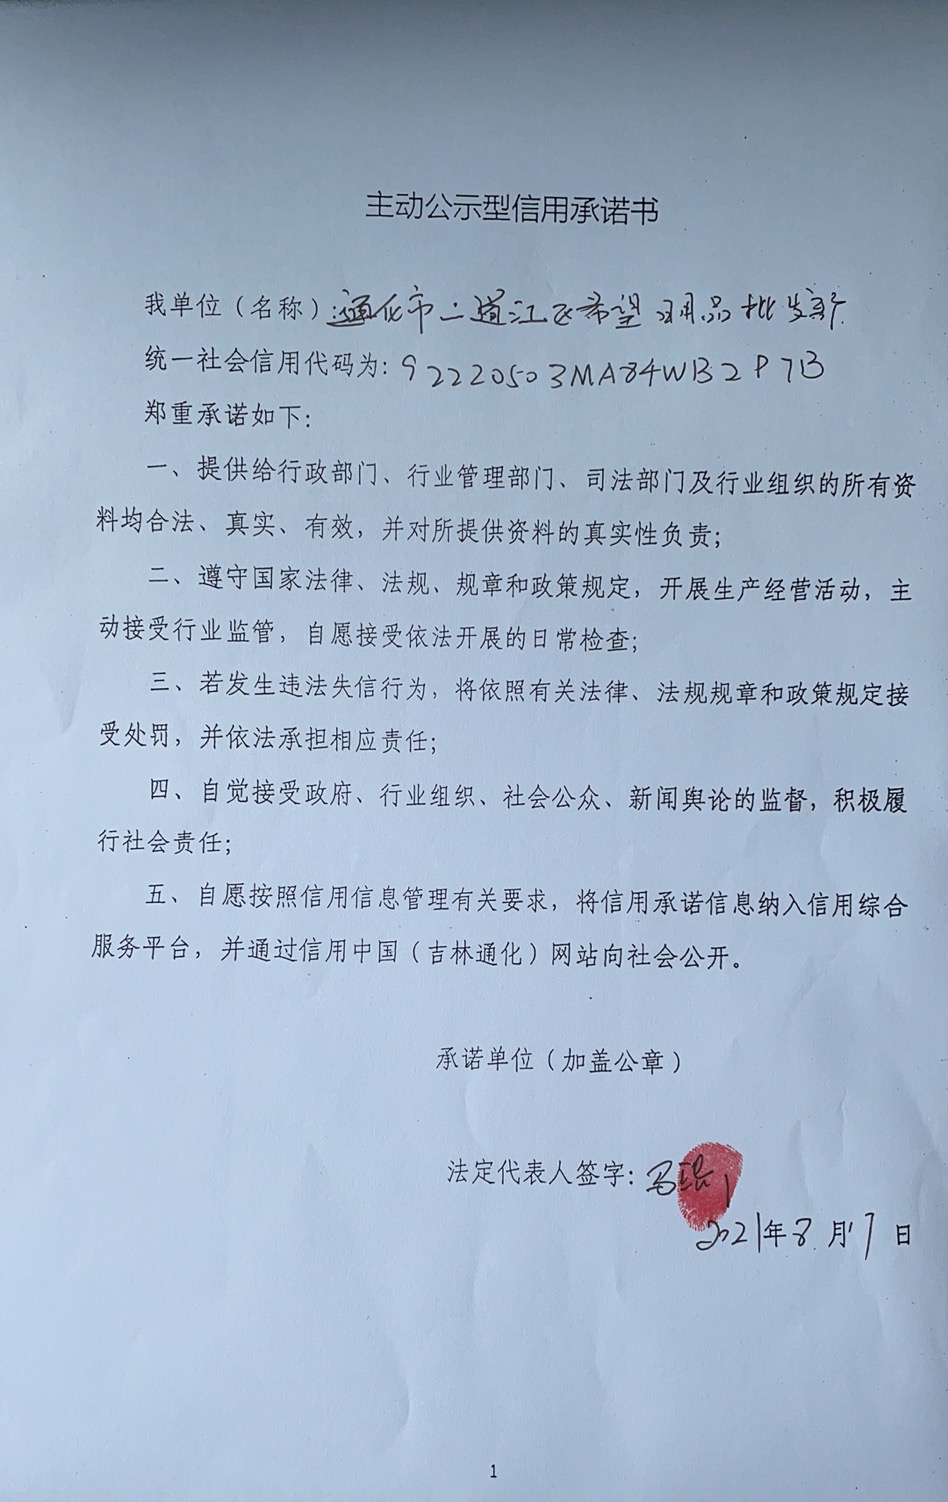 主动公示型信用承诺书
我单位（名称）：通化市二道江区希望日用品批发部
统一社会信用代码为：92220503MA84WB2P7B
郑重承诺如下：
一、提供给行政部门、行业管理部门、司法部门及行业组织的所有资
料均合法、真实、有效，并对所提供资料的真实性负责；
二、遵守国家法律、法规、规章和政策规定，开展生产经营活动，主
动接受行业监管，自愿接受依法开展的日常检查；
三、若发生违法失信行为，将依照有关法律、法规规章和政策规定接
受处罚，并依法承担相应责任；
四、自觉接受政府、行业组织、社会公众、新闻舆论的监督，积极履
行社会责任；
五、自愿按照信用信息管理有关要求，将信用承诺信息纳入信用综合
服务平台，并通过信用中国（吉林通化）网站向社会公开。
承诺单位（加盖公章）
法定代表人签字：
2021年8月17日
1